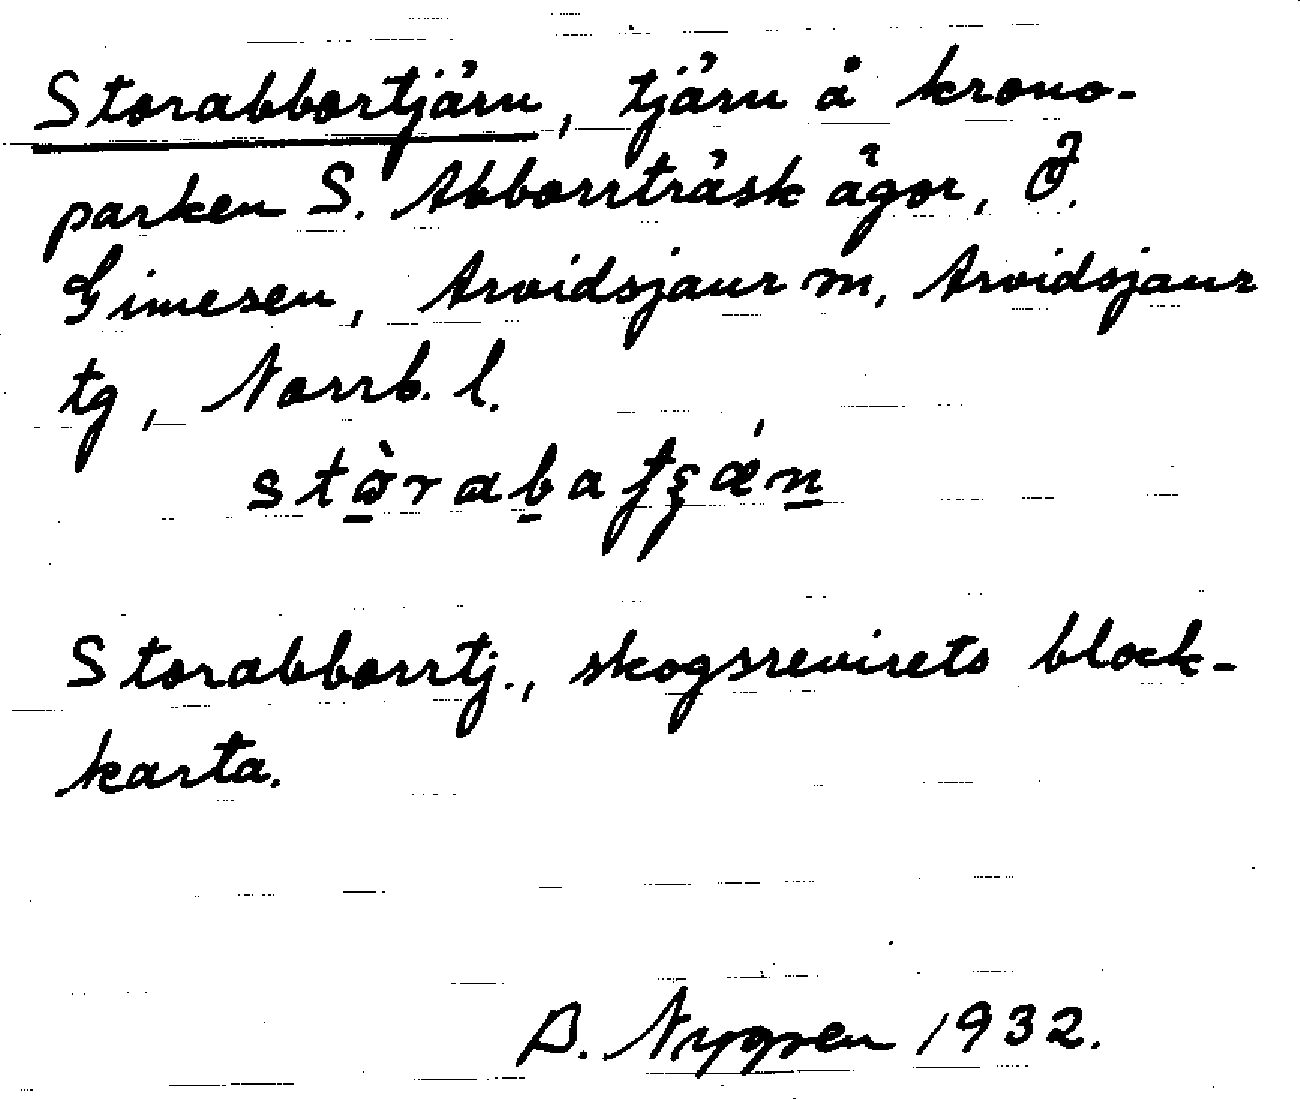 Storabbortjärn, tjärn å krono-
parken S. Abborrträsk ägor, Ö.
Gimesen, Arvidsjaur m, Arvidsjaur
tg, Norrb. l.
Storabborrtj., skogsrevirets block-
karta.
A. Nygren 1932.